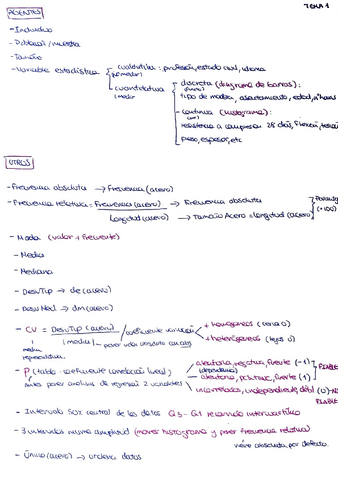 TEMA 1
AGENTES
- Individuo
- Población / muestra
- Tamaño
- Variable estadística
cualitativa: profesión, estado civil, idioma
cuantitativa
discreta (diagrama de barras):
tipo de madera, asentamiento, edad, nº
continua (histograma):
resistencia a compresión 28 días, flexión,
peso, espesor, etc
OTROS
- Frecuencia absoluta → Frecuencia (acero)
- Frecuencia relativa = Frecuencia (acero) → Frecuencia absoluta
Longitud (acero) → Tamaño Acero = longitud (acero)
(×100)
- Moda (valor + frecuente)
- Media
- Mediana
- Desv Típ → de (acero)
- Desv Med → dm (acero)
- CV = Desv Típ (acero) / coeficiente variación
+ homogéneos (cerca 0)
|media| - poner valor absoluto
+ heterogéneos (lejos 0)
media representativa.
aleatoria, negativa, fuerte (-1)
(dependencia)
- P (tabla - coeficiente correlación lineal)
aleatoria, positiva, fuerte (1)
antes poner análisis de regresión 2 variables
incorreladas, independiente, débil (0)
- Intervalo 50% central de los datos Q3 - Q1 recorrido intercuartílico
- 3 intervalos misma amplitud (mover histograma y poner frecuencia relativa)
viene absoluta por defecto.
- Único (acero) → ordena datos